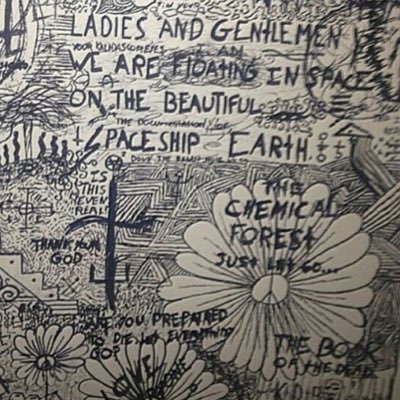 LADIES AND GENTLEMEN
YOUR KALIDASCOPE EYES I AM
WE ARE FLOATING IN SPACE
ON THE BEAUTIFUL
THE DOCUMENTATION
SPACESHIP EARTH.
DOWN THE RABBIT HOLE
IS
THIS
EVEN
REAL
THANK YOUR
GOD
THE
CHEMICAL
FOREST
JUST LET GO...
ARE YOU PREPARED
TO DIE, LET EVERYTHING
GO?
THE BOOK
OF THE DEAD
LOVE